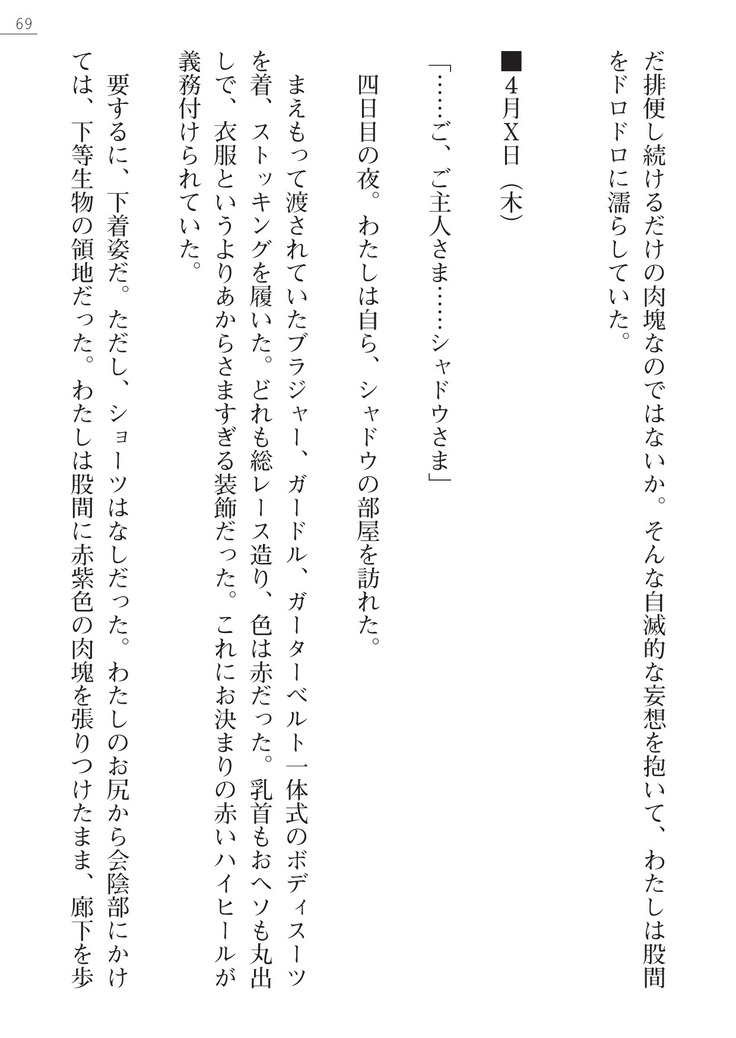 69
だ排便し続けるだけの肉塊なのではないか。そんな自滅的な妄想を抱いて、わたしは股間
をドロドロに濡らしていた。
■4月X日（木）
「……ご、ご主人さま……シャドウさま」
四日目の夜。わたしは自ら、シャドウの部屋を訪れた。
まえもって渡されていたブラジャー、ガードル、ガーターベルト一体式のボディスーツ
を着、ストッキングを履いた。どれも総レース造り、色は赤だった。乳首もおヘソも丸出
しで、衣服というよりあからさますぎる装飾だった。これにお決まりの赤いハイヒールが
義務付けられていた。
要するに、下着姿だ。ただし、ショーツはなしだった。わたしのお尻から会陰部にかけ
ては、下等生物の領地だった。わたしは股間に赤紫色の肉塊を張りつけたまま、廊下を歩